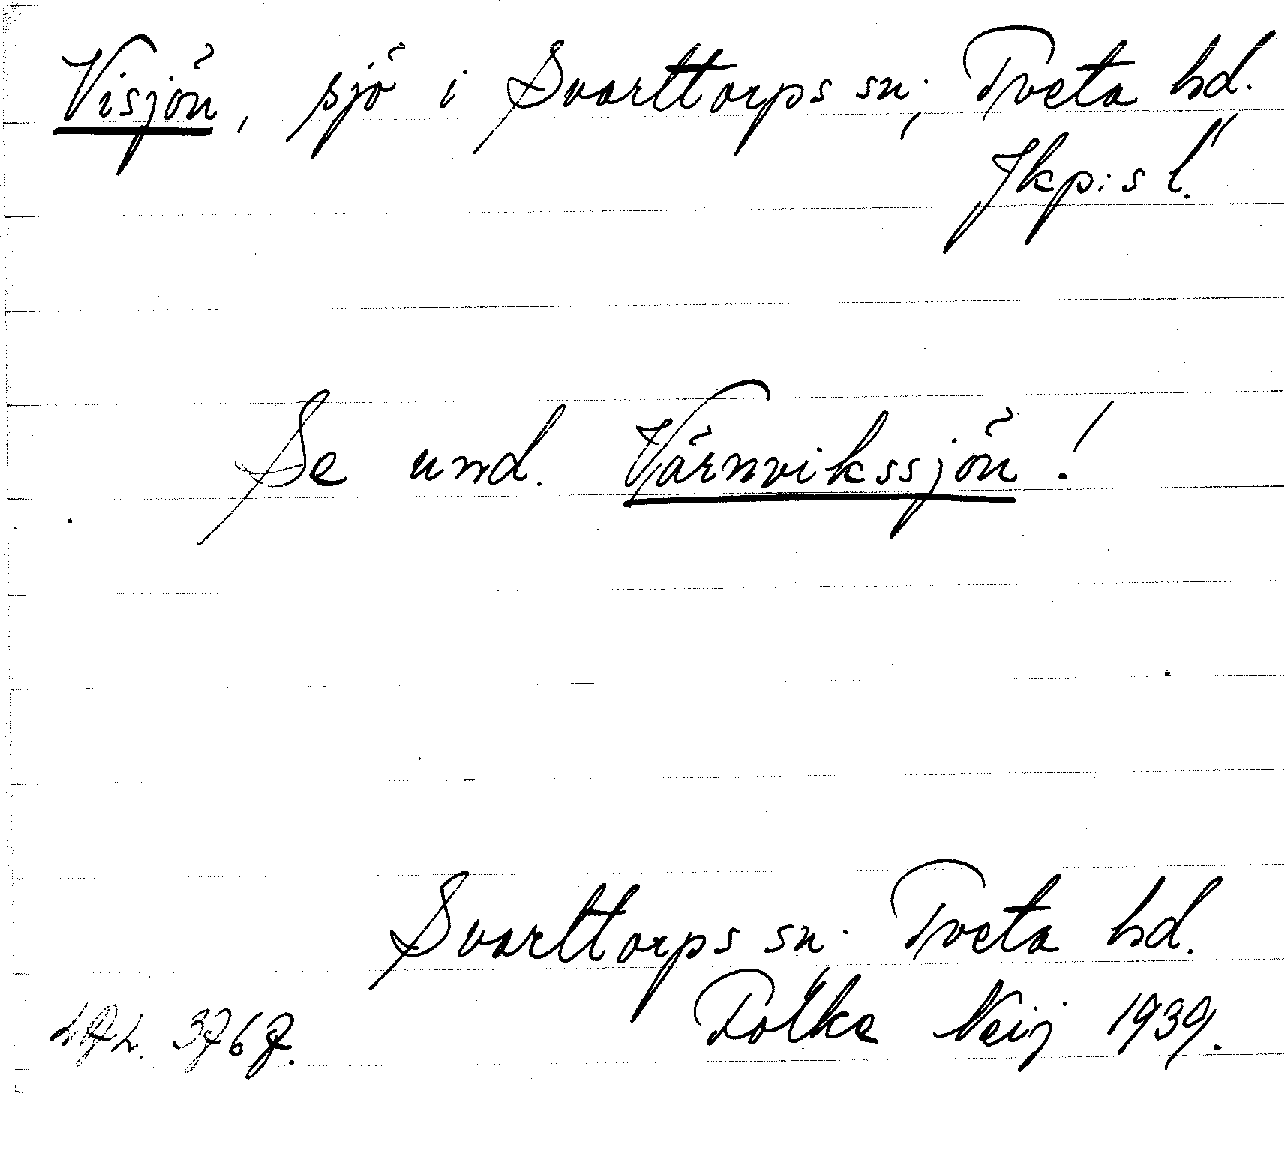 Visjön, sjö i Svarttorps sn; Tveta hd.
Jkp:s l.
Se und. Värnvikssjön!
Svarttorps sn. Tveta hd.
Folke Neij 1939.
3767.